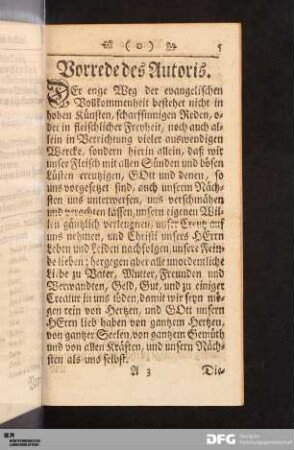 ( o ) 5
Vorrede des Autoris.
DEr enge Weg der evangelischen
Vollkommenheit bestehet nicht in
hohen Künsten, scharfsinnigen Reden, o-
der in fleischlicher Freyheit, noch auch al-
lein in Verrichtung vieler auswendigen
Wercke, sondern hierin allein, daß wir
unser Fleisch mit allen Sünden und bösen
Lüsten creutzigen, GOtt und denen, so
uns vorgesetzet sind, auch unserm Näch-
sten uns unterwerfen, uns verschmähen
und verachten lassen, unsern eigenen Wil-
len gäntzlich verleugnen, unser Creutz auf
uns nehmen, und Christi unsers HErrn
Leben und Leiden nachfolgen, unsere Fein-
de lieben; hergegen aber alle unordentliche
Liebe zu Vater, Mutter, Freunden und
Verwandten, Geld, Gut, und zu einiger
Creatur in uns töden, damit wir seyn mö-
gen rein von Hertzen, und GOtt unsern
HErrn lieb haben von gantzem Hertzen,
von gantzer Seelen, von gantzem Gemüth
und von allen Kräften, und unsern Näch-
sten als uns selbst.
A 3 Die-
DFG Deutsche
Forschungsgemeinschaft